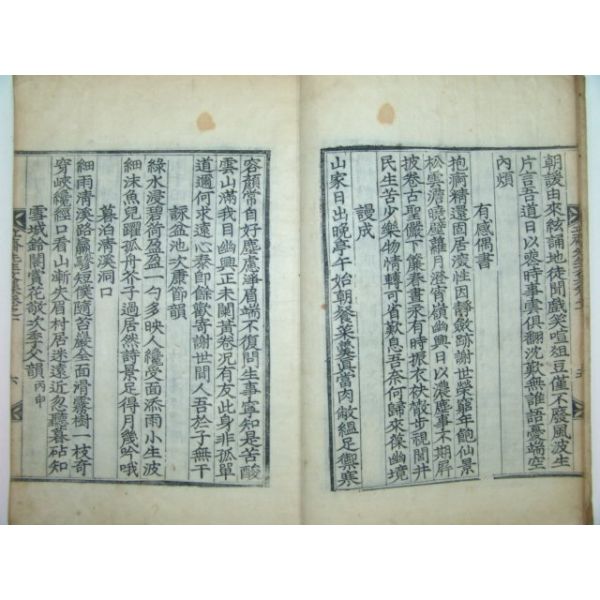 朝諼由來絃誦地徒聞戲笑喧俎豆僅不廢風波生
片言吾道日以衰時事雲俱翻沈歎無誰語憂端空
內煩
有感偶書
抱痾精還固居淡性因靜斂跡謝世榮窮年飽仙景
松雲澹晚壁蘿月澄宵嶺幽興日以濃塵事不期屏
披卷古聖儼下簾春晝永有時振衣袂散步視閭井
民生苦少樂物情轉可省歎息吾奈何歸來葆幽境
謾成
山家日出晚亭午始朝餐菜羹眞當肉敝縕足禦寒
容顏常自好塵慮
眉端不復問生事寧知是苦酸
雲山滿我目幽興正未闌黃卷況有友此身非孤單
道邇何求遠心泰卽餘歡寄謝世間人吾於子無干
詠盆池次康節韻
綠水浸碧荷盈盈一勺多映人纔受面添雨小生波
細沫魚兒躍孤舟芥子過居然詩景足得月幾吟哦
暮泊清溪洞口
細雨淸溪路羸驂短僕隨苔巖全面滑霧樹一枝奇
穿峽纔經口看山漸失眉村居迷遠近忽聽暮砧知
雪城鈴閣賞花敬次季父韻丙申